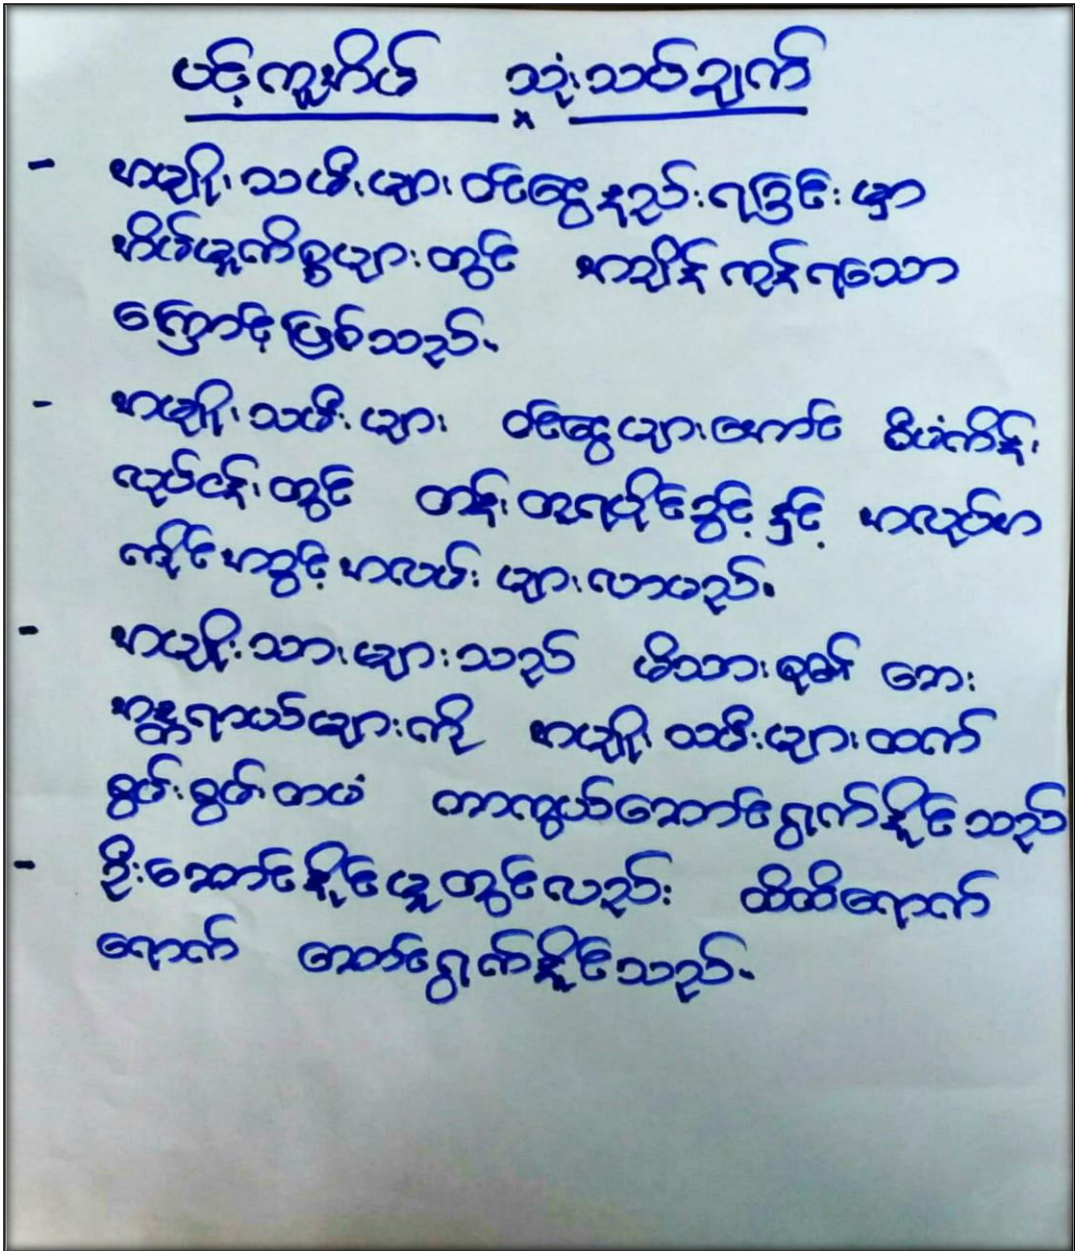 ပင့်ကူအိမ် သုံးသပ်ချက်
- အမျိုးသမီးများ ဝင်ငွေနည်းရခြင်းမှာ
အိမ်မှုကိစ္စများတွင် အချိန်ကုန်ရသော
ကြောင့်ဖြစ်သည်။
- အမျိုးသမီးများ ဝင်ငွေများအောင် စီမံကိန်း
လုပ်ငန်းတွင် တန်းတူရပိုင်ခွင့်နှင့် အလုပ်အ
ကိုင်အခွင့်အလမ်းများလာမည်။
- အမျိုးသားများသည် မိသားစု၏ ဘေး
အန္တရာယ်များကို အမျိုးသမီးများထက်
စွမ်းစွမ်းတမံ ကာကွယ်ဆောင်ရွက်နိုင်သည်
- ဦးဆောင်နိုင်မှုတွင်လည်း ထိထိရောက်
ရောက် ဆောင်ရွက်နိုင်သည်။